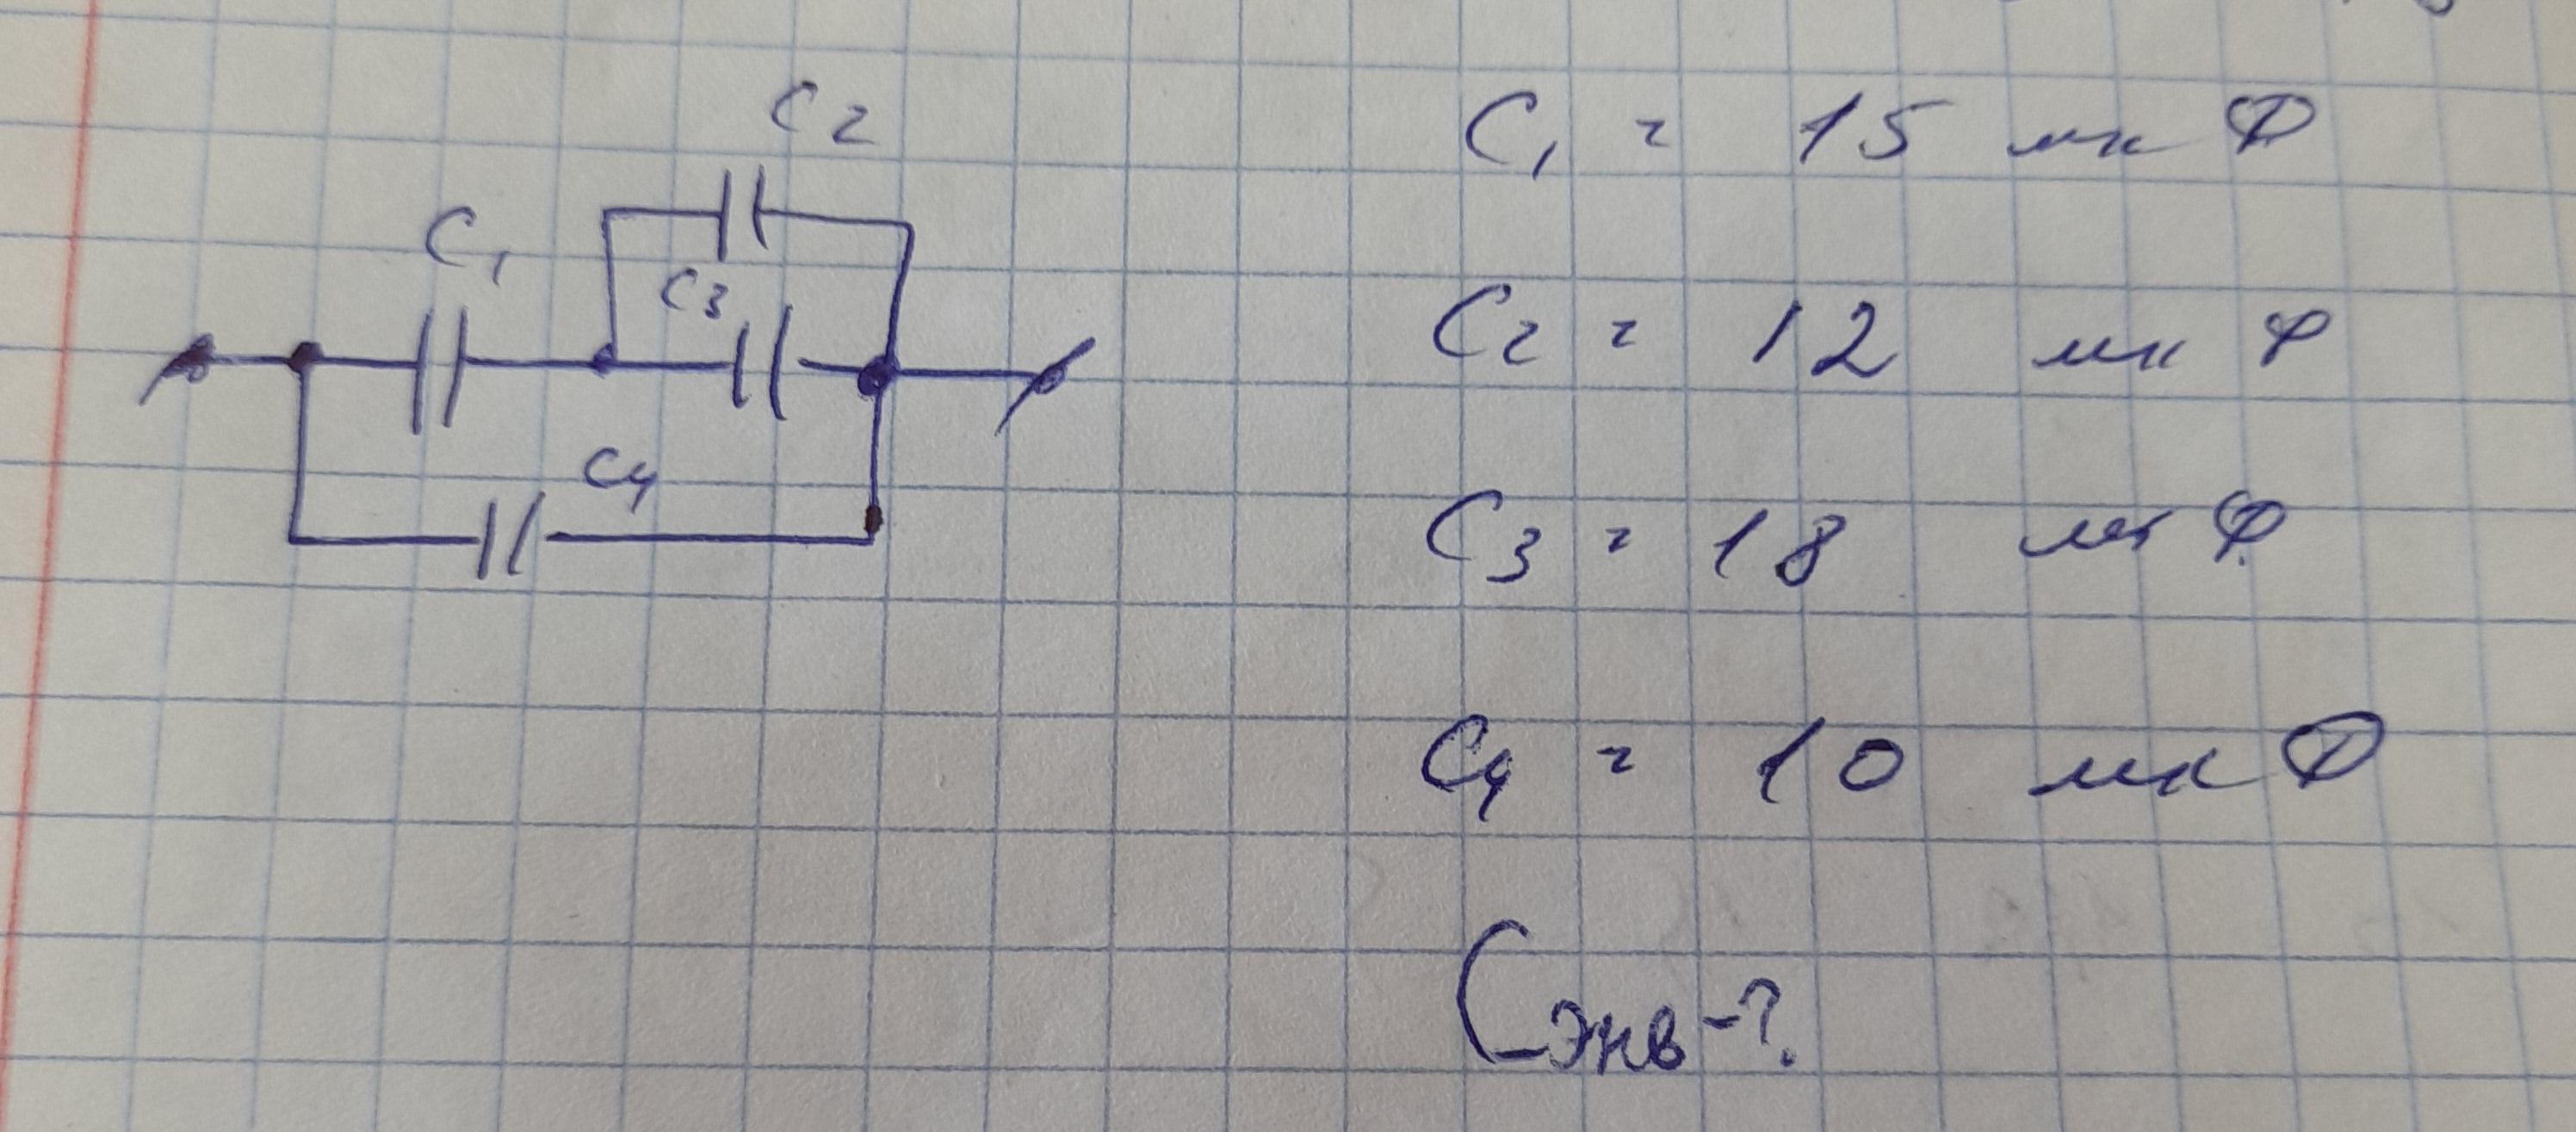 C2
C1
C3
C4
C1 = 15 мкФ
C2 = 12 мкФ
C3 = 18 мкФ
C4 = 10 мкФ
Cэкв-?